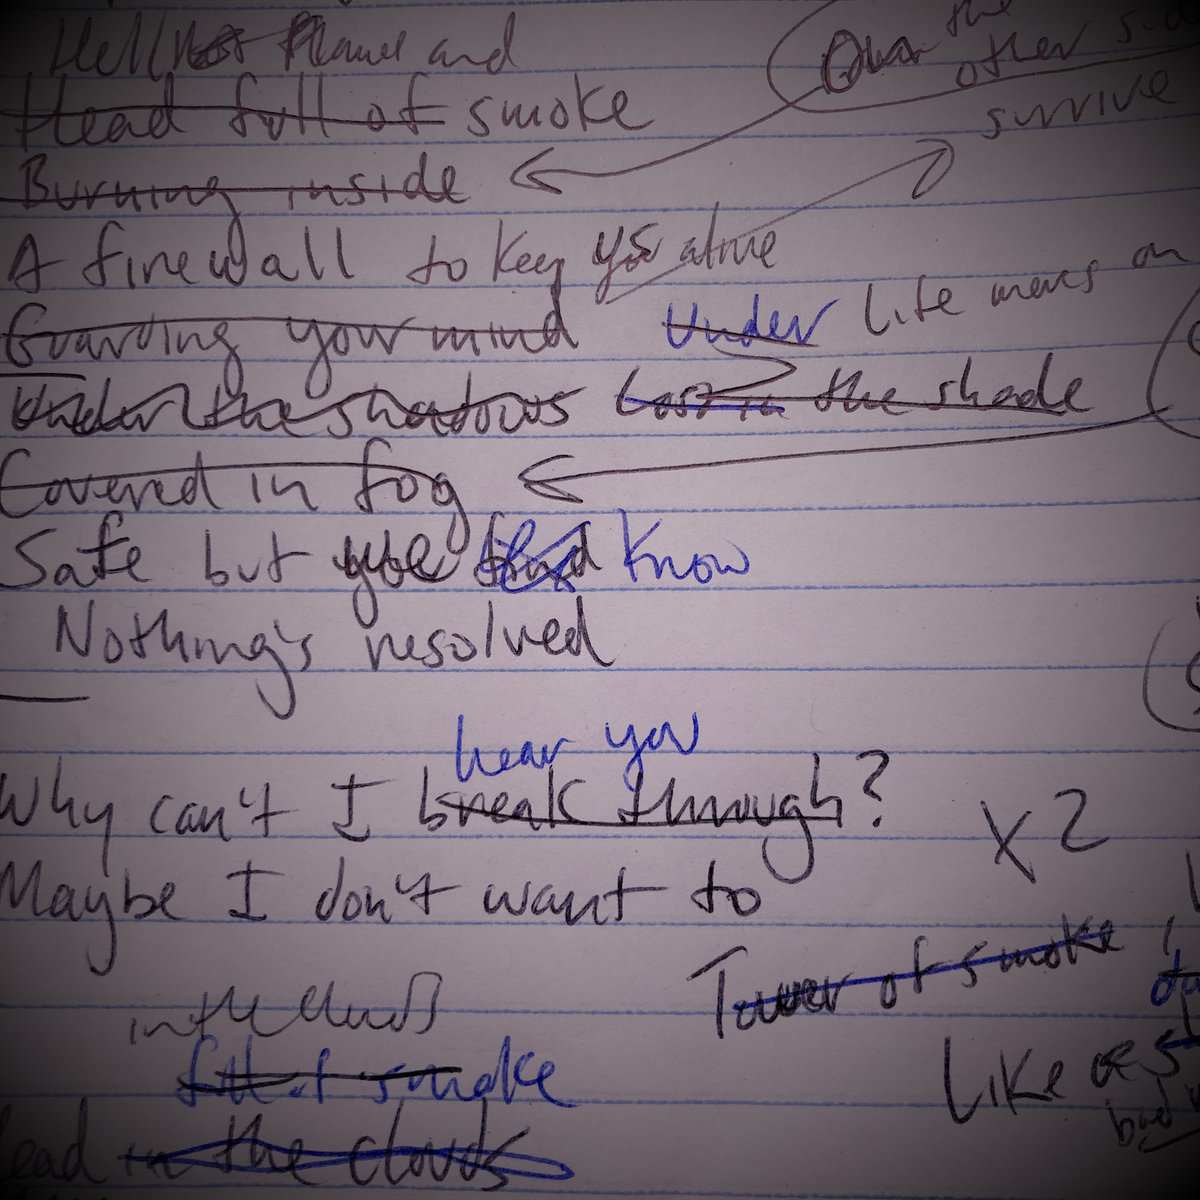 Hell Flame and
the
Over
other
Head full of smoke
survive
Burning inside
A firewall to keep alive
Guarding your mind Under Life moves on
Under the shadows Lost in the shade
Covered in fog
Safe but know
Nothing's resolved
hear you
Why can't I break through?
X2
Maybe I don't want to
Tower of smoke
in the clouds
full of smoke
Like
in the clouds